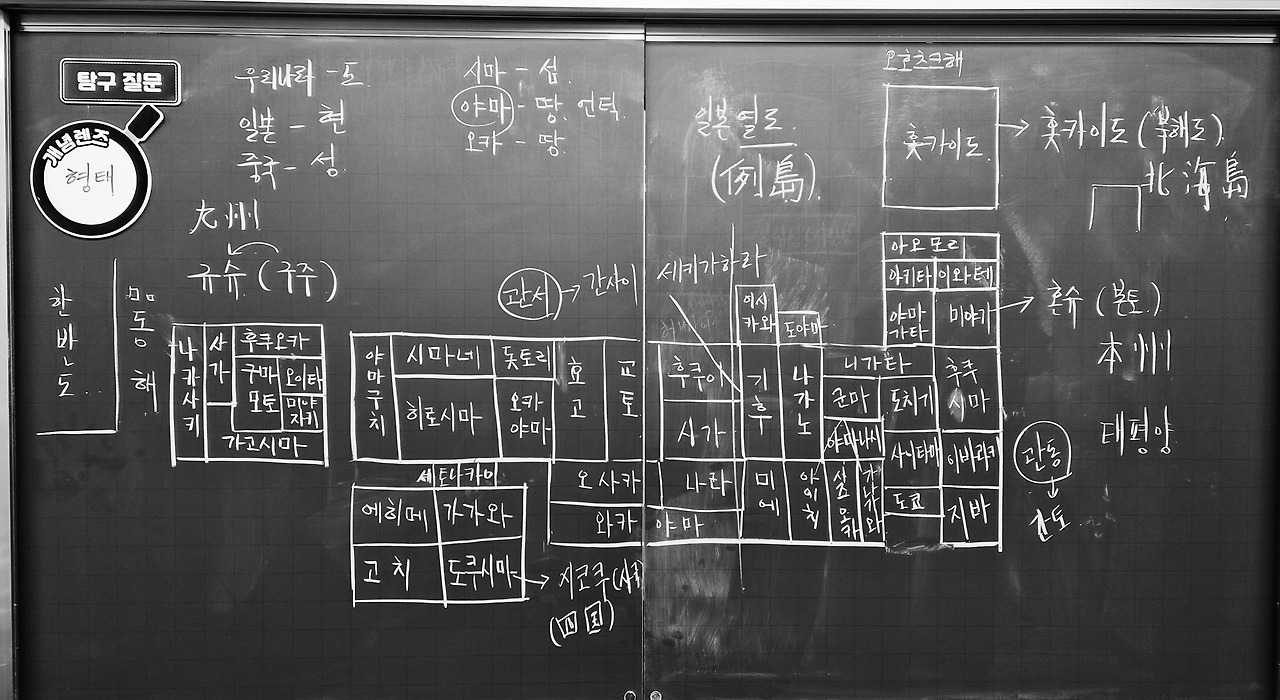 탐구 질문
개념렌즈
형태
우리나라 - 도.
일본 - 현
중국 - 성.
시마 - 섬.
야마 - 땅. 언덕
오카 - 땅.
九州
규슈 (구주)
한반도..
동해
일본 열도.
(列島).
오호츠크해
홋카이도.
홋카이도 (북해도.)
北海島
관서 → 간사이
세키가하라
나가사키
사가
후쿠오카
구마모토
오이타
미야자키
가고시마
야마구치
시마네
돗토리
히로시마
오카야마
효고
교토
오사카
와카야마
세토나카이
에히메
가가와
고치
도쿠시마
시코쿠
(四国)
후쿠이
시가
나라
이시카와
도야마
기후
나가노
미에
아이치
니가타
군마
도치기
야마나시
시즈오카
가나가와
사이타마
이바라키
도쿄
지바
후쿠시마
아오모리
아키타
이와테
야마가타
미야기
혼슈 (본토.)
本州
태평양
관동
간토